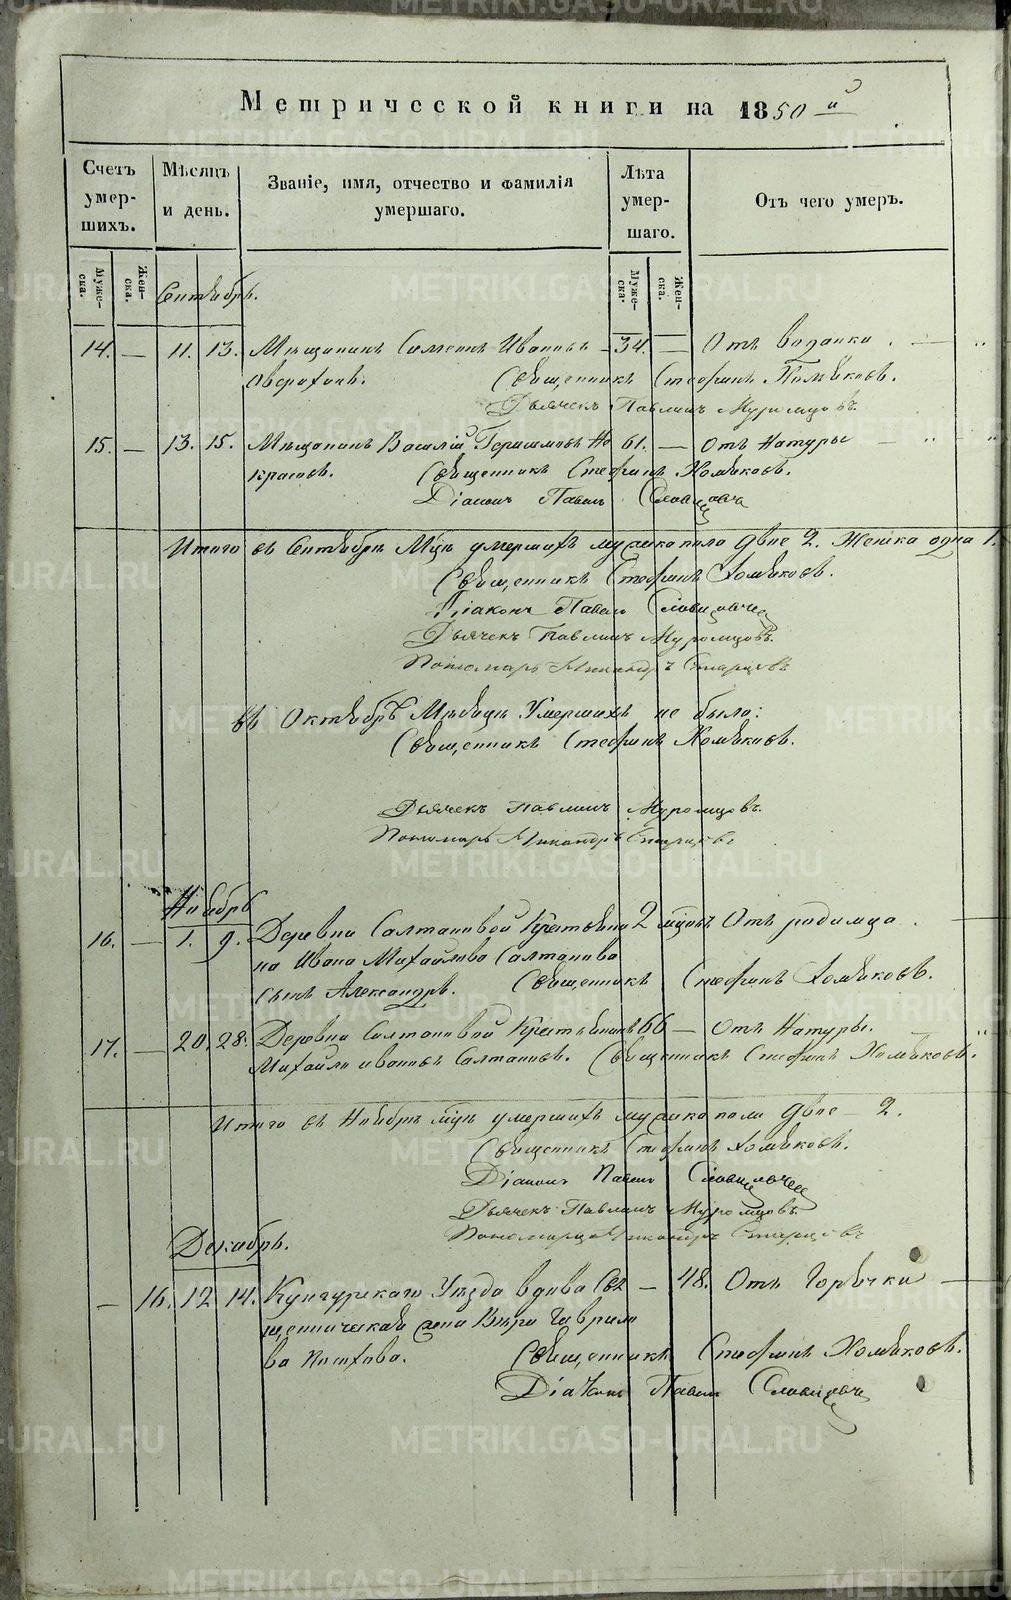 Метрической книги на 1850 й
Счетъ умер-шихъ.
Мѣсяцъ и день.
Званіе, имя, отчество и фамилія умершаго.
Лѣта умер-шаго.
Отъ чего умеръ.
Муже-ска.
Жен-ска.
Муже-ска.
Жен-ска.
Сентябрь.
14. — 11. 13. Мѣщанинъ Симеонъ Ивановъ — 34. — Отъ водянки.
Священникъ Стефанъ Хомяковъ.
Дьячекъ Павлинъ Муромцовъ.
15. — 13. 15. Мѣщанинъ Василій Герасимовъ Не 61. — Отъ Натуры
красовъ. Священникъ Стефанъ Хомяковъ.
Діаконъ Павелъ Словцовъ
Итого въ Сентябрѣ Мцѣ умершихъ мужска пола двое 2. Женска одна 1.
Священникъ Стефанъ Хомяковъ.
Діаконъ Павелъ Словцовъ
Дьячекъ Павлинъ Муромцовъ.
Пономарь Никандръ Старцевъ
въ Октябрѣ Мѣсяцѣ Умершихъ не было:
Священникъ Стефанъ Хомяковъ.
Дьячекъ Павлинъ Муромцовъ.
Пономарь Никандръ Старцевъ
Ноябрь
16. — 1. 9. Деревни Салтановой Крестьяни 2 мцовъ Отъ родимца
на Ивана Михайлова Салтанова
сынъ Александръ. Священникъ Стефанъ Хомяковъ.
17. — 20. 28. Деревни Салтановой Крестьянинъ 66 — Отъ Натуры.
Михайло Ивановъ Салтановъ. Священникъ Стефанъ Хомяковъ.
Итого въ Ноябрѣ мцѣ умершихъ мужска пола двое — 2.
Священникъ Стефанъ Хомяковъ.
Діаконъ Павелъ Словцовъ
Дьячекъ Павлинъ Муромцовъ.
Пономарь Никандръ Старцевъ
Декабрь.
— 16. 12 14. Кунгурскаго Уѣзда вдова Свя — 48. Отъ Горячки —
щенническая жена Вѣра Гаврило
ва
Священникъ Стефанъ Хомяковъ.
Діаконъ Павелъ Словцовъ
METRIKI.GASO-URAL.RU